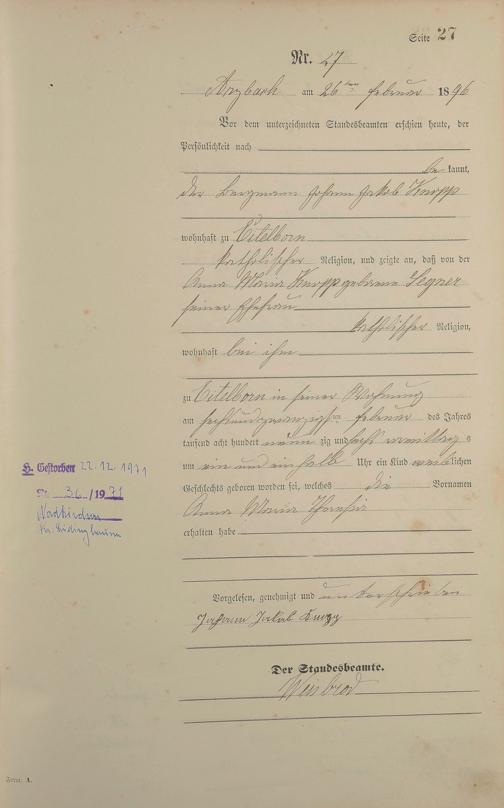 Seite 27
Nr. 27
Arzbach am 26ten Februar 1896
Vor dem unterzeichneten Standesbeamten erschien heute, der
Persönlichkeit nach
be kannt,
der Bergmann Johann Jakob Knopp
wohnhaft zu Eitelborn
katholischer Religion, und zeigte an, daß von der
Anna Maria Knopp geborene Segner
seiner Ehefrau
katholischer Religion,
wohnhaft bei ihm
zu Eitelborn in seiner Wohnung
am sechsundzwanzigsten Februar des Jahres
tausend acht hundert neun zig und sechs vormittags
um ein und ein halb Uhr ein Kind weiblichen
Geschlechts geboren worden sei, welches die Vornamen
H. Gestorben 22.12.1971
Anna Maria Theresia
Nr. 36/1971
erhalten habe
Nordkirchen
Kr. Lüdinghausen
Vorgelesen, genehmigt und unterschrieben
Johann Jakob Knopp
Der Standesbeamte.
Weisbrod
Form. A.